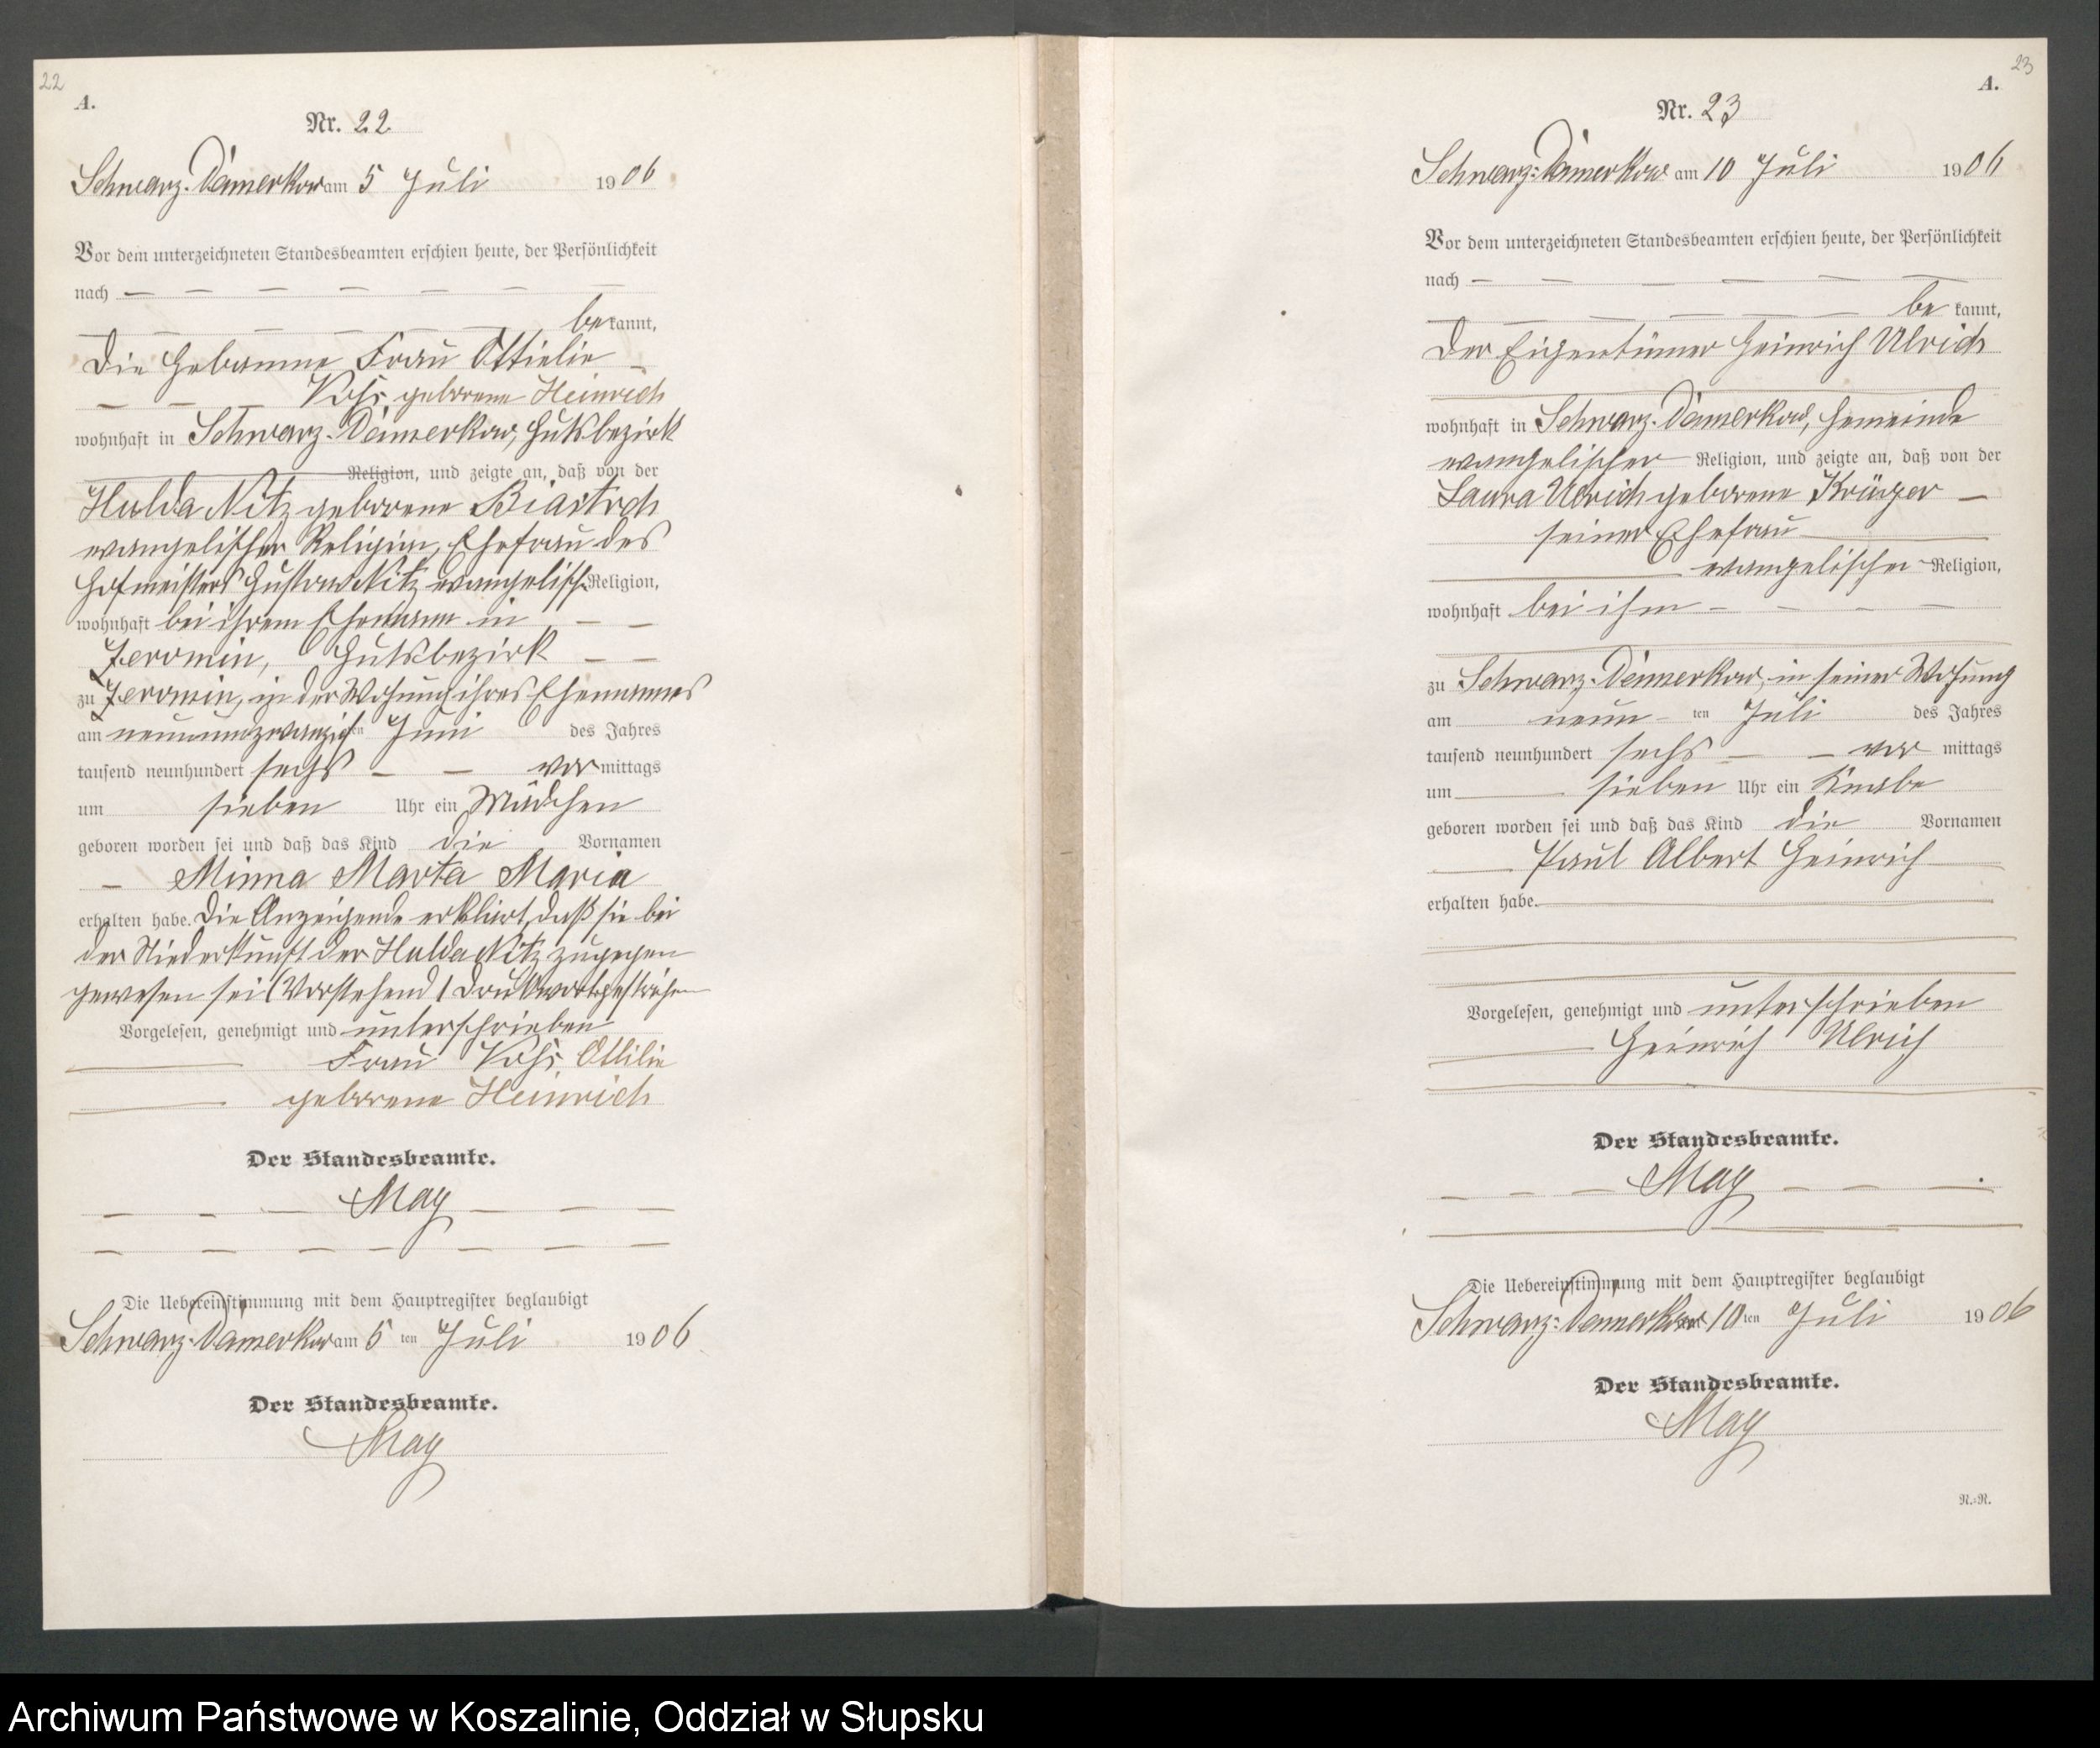 22
A.
Nr. 22
Schwarz-Damerkow am 5 Juli 1906
Vor dem unterzeichneten Standesbeamten erschien heute, der Persönlichkeit
nach
bekannt,
Die Hebamme Frau Ottielie
Voß, geborene Heinrich
wohnhaft in Schwarz-Damerkow, Gutsbezirk
Religion, und zeigte an, daß von der
Hulda Nitz geborene
evangelischer Religion, Ehefrau des
Hofmeisters Gustav Nitz evangelisch. Religion,
wohnhaft bei ihrem Ehemann in
Jeromin, Gutsbezirk
zu Jeromin, in der Wohnung ihres Ehemannes
am neunundzwanzigsten Juni des Jahres
tausend neunhundert sechs vormittags
um sieben Uhr ein Mädchen
geboren worden sei und daß das Kind die Vornamen
Minna Marta Maria
erhalten habe. Die Anzeigende erklärt, daß sie bei
der Niederkunft der Hulda Nitz zugegen
gewesen sei (Vorstehend 1 Druckwort gestrichen
Vorgelesen, genehmigt und unterschrieben
Frau Voß, Ottilie
geborene Heinrich
Der Standesbeamte.
May
Die Uebereinstimmung mit dem Hauptregister beglaubigt
Schwarz-Damerkow am 5 ten Juli 1906
Der Standesbeamte.
May
23
A.
Nr. 23
Schwarz-Damerkow am 10 Juli 1906
Vor dem unterzeichneten Standesbeamten erschien heute, der Persönlichkeit
nach
be kannt,
Der Eigentümer Heinrich Ulrich
wohnhaft in Schwarz-Damerkow, Gemeinde
evangelischer Religion, und zeigte an, daß von der
Laura Ulrich geborene Krüger
seiner Ehefrau
evangelischer Religion,
wohnhaft bei ihm
zu Schwarz-Damerkow, in seiner Wohnung
am neun ten Juli des Jahres
tausend neunhundert sechs vor mittags
um sieben Uhr ein Knabe
geboren worden sei und daß das Kind die Vornamen
Paul Albert Heinrich
erhalten habe.
Vorgelesen, genehmigt und unterschrieben
Heinrich Ulrich
Der Standesbeamte.
May
Die Uebereinstimmung mit dem Hauptregister beglaubigt
Schwarz-Damerkow am 10 ten Juli 1906
Der Standesbeamte.
May
R.-R.
Archiwum Państwowe w Koszalinie, Oddział w Słupsku